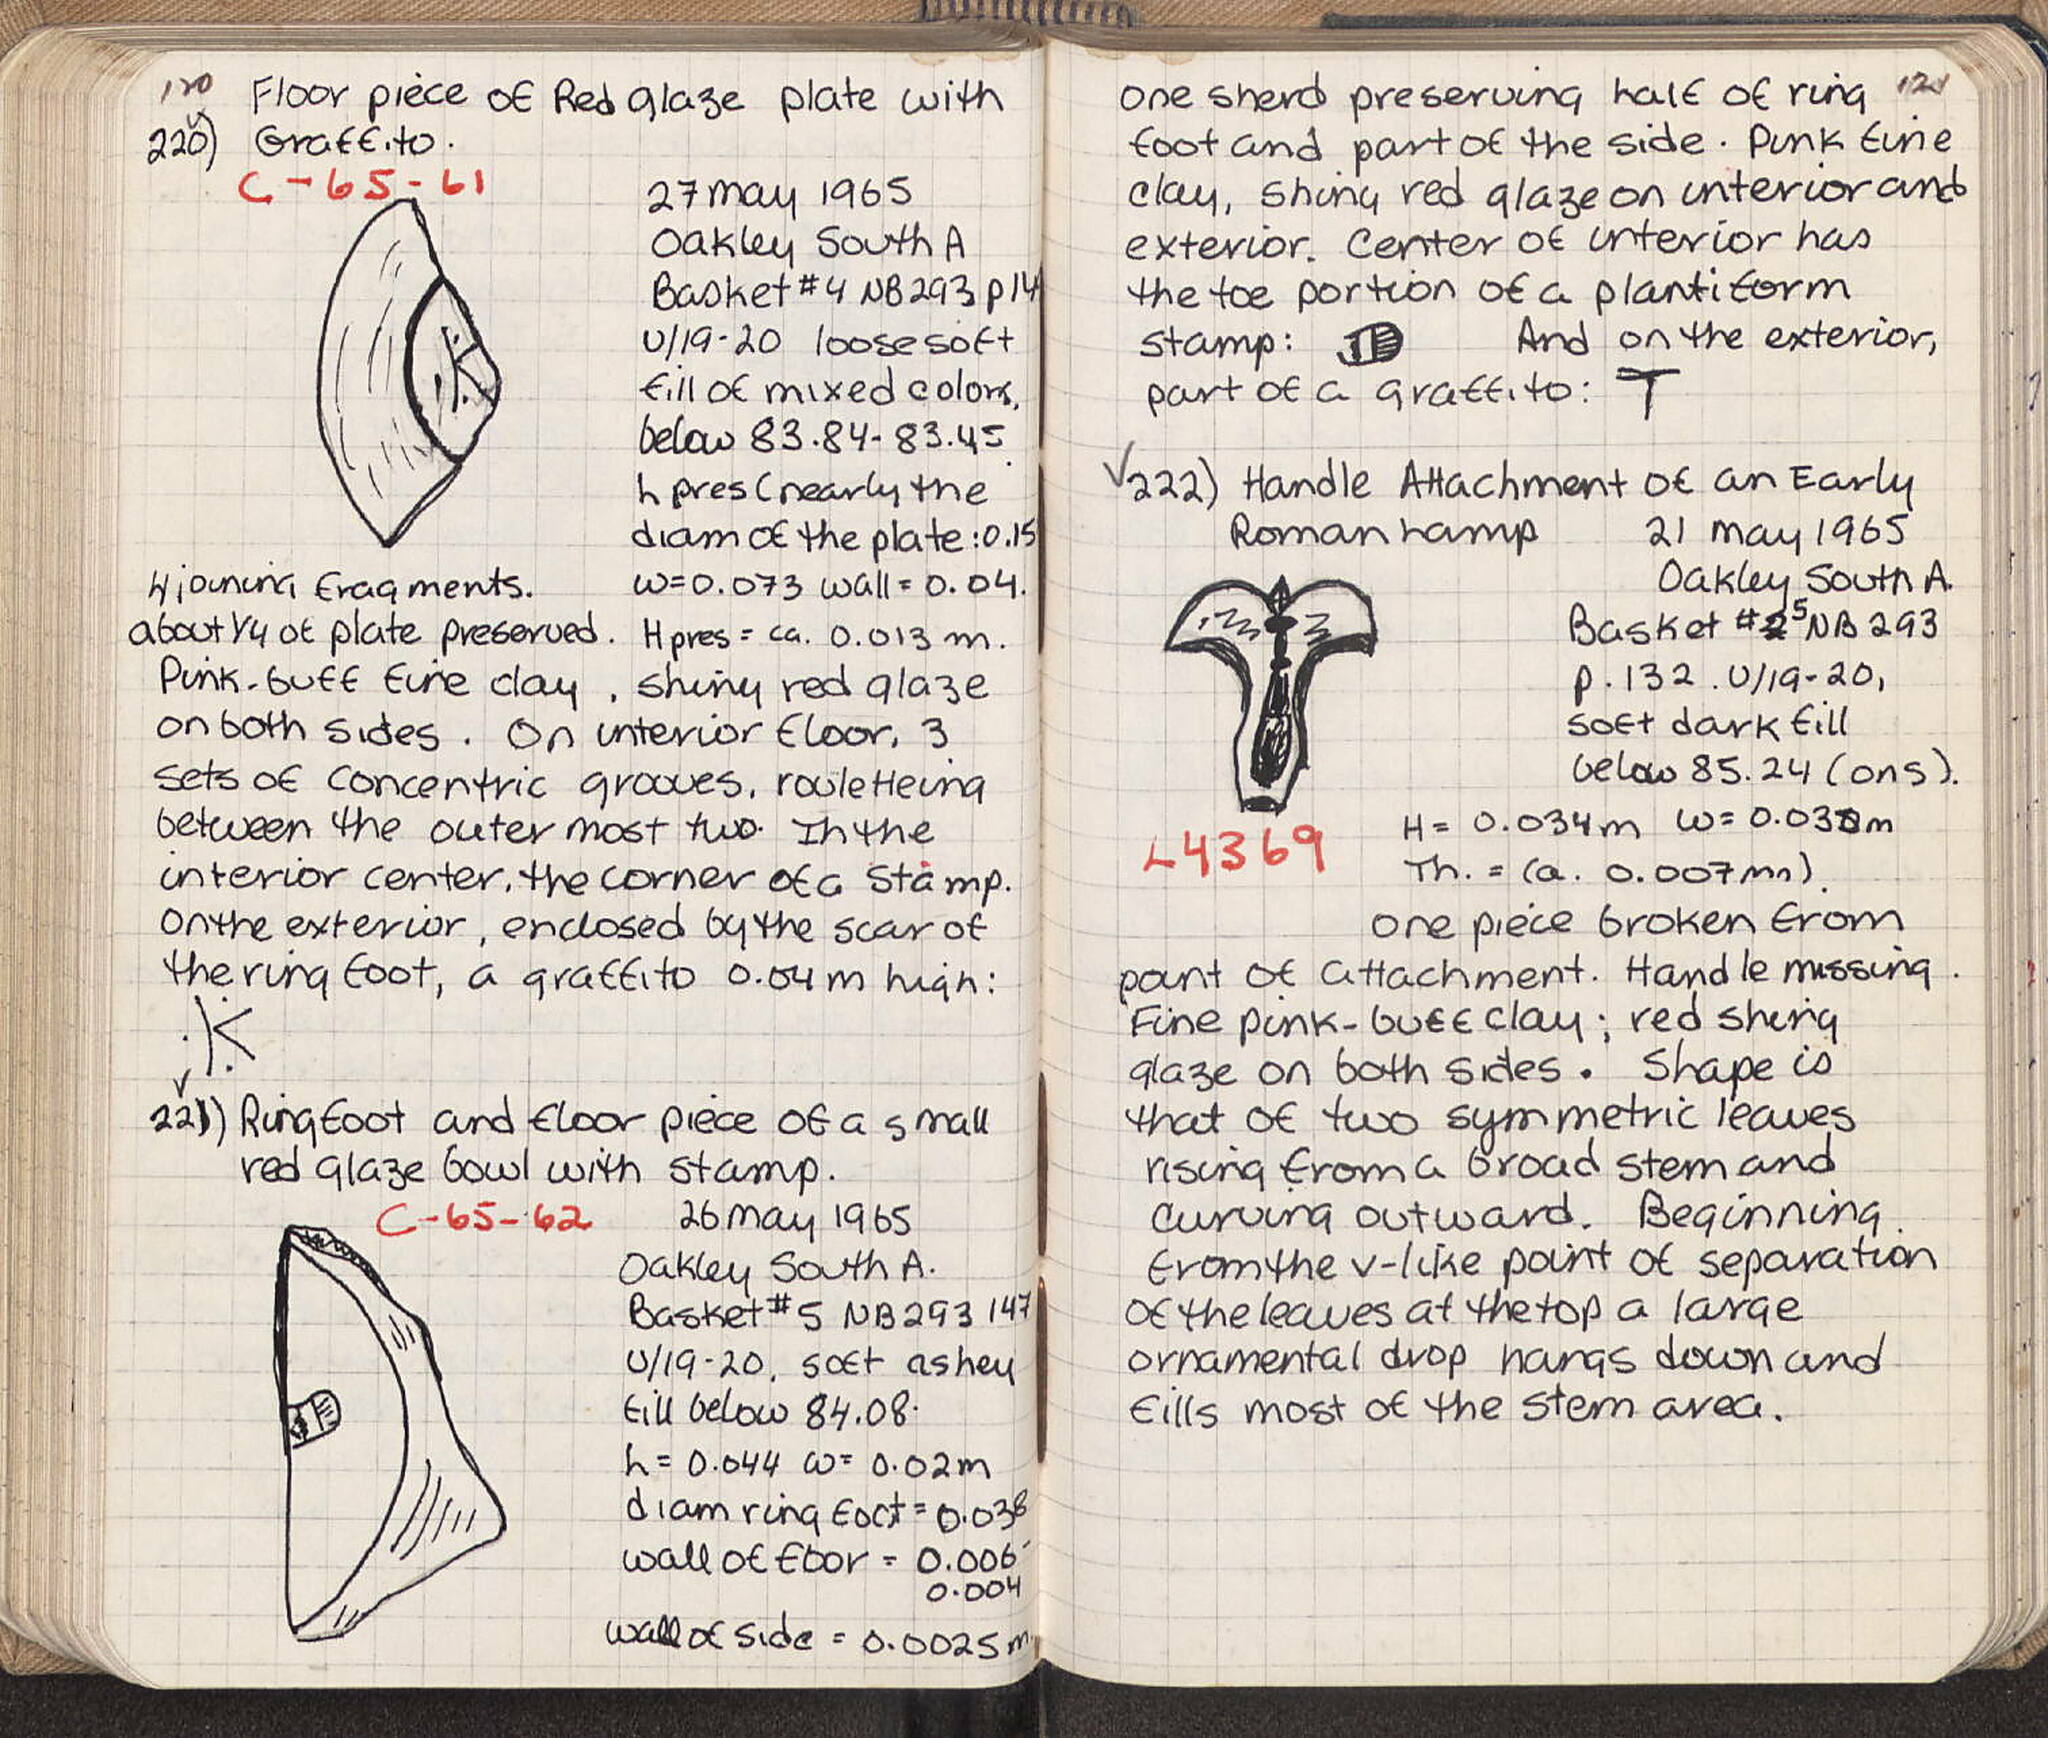 120
Floor piece of Red glaze plate with
220) Graffito.
C-65-61
27 May 1965
Oakley South A
Basket #4 NB293 p14
U/19-20 loose soft
fill of mixed colors,
below 83.84-83.45
h pres (nearly the
diam of the plate: 0.15
w=0.073 wall = 0.04.
4 joining fragments.
about 1/4 of plate preserved. H pres = ca. 0.013 m.
Pink-buff fine clay, shiny red glaze
on both sides. On interior floor, 3
sets of concentric grooves, rouletteing
between the outer most two. In the
interior center, the corner of a stamp.
On the exterior, enclosed by the scar of
the ring foot, a graffito 0.04 m high:
K
221) Ring foot and floor piece of a small
red glaze bowl with stamp.
C-65-62
26 May 1965
Oakley South A.
Basket #5 NB293 147
U/19-20, soft ashey
fill below 84.08.
h = 0.044 w = 0.02m
diam ring foot = 0.038
wall of floor = 0.006-
0.004
wall of side = 0.0025 m.
121
one sherd preserving half of ring
foot and part of the side. Pink fine
clay, shiny red glaze on interior and
exterior. Center of interior has
the toe portion of a plantiform
stamp: And on the exterior,
part of a graffito: T
222) Handle Attachment of an Early
Roman Lamp
21 May 1965
Oakley South A.
Basket #5 NB 293
p. 132. U/19-20,
soft dark fill
below 85.24 (ons).
L4369
H = 0.034m w = 0.03 m
Th. = (a. 0.007m).
one piece broken from
point of attachment. Handle missing.
Fine pink-buff clay; red shiny
glaze on both sides. Shape is
that of two symmetric leaves
rising from a broad stem and
curving outward. Beginning
from the v-like point of separation
of the leaves at the top a large
ornamental drop hangs down and
fills most of the stem area.